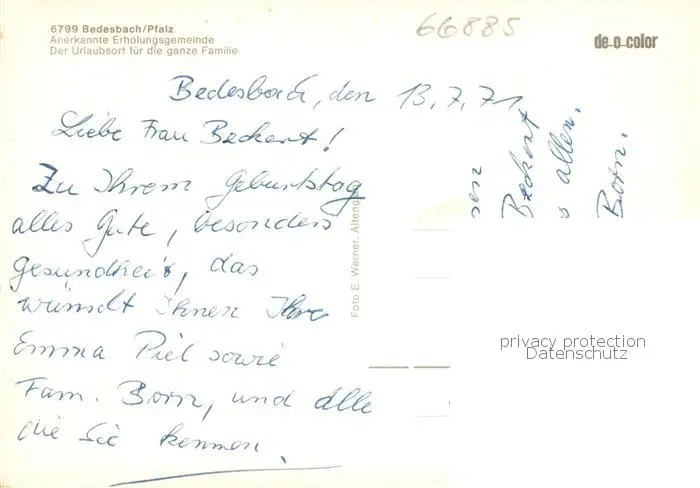 6799 Bedesbach/Pfalz
Anerkannte Erholungsgemeinde
Der Urlaubsort für die ganze Familie
66885
de-o-color
Bedesbach, den 13.7.71
Liebe Frau Beckert!
Zu Ihrem Geburtstag
alles Gute, besonders
Gesundheit, das
wünscht Ihnen Ihre
Emma Piel sowie
Fam. Born, und alle
die Sie kennen.
Beckert
s allen.
Born.
Foto E. Werner, Alteng
privacy protection
Datenschutz